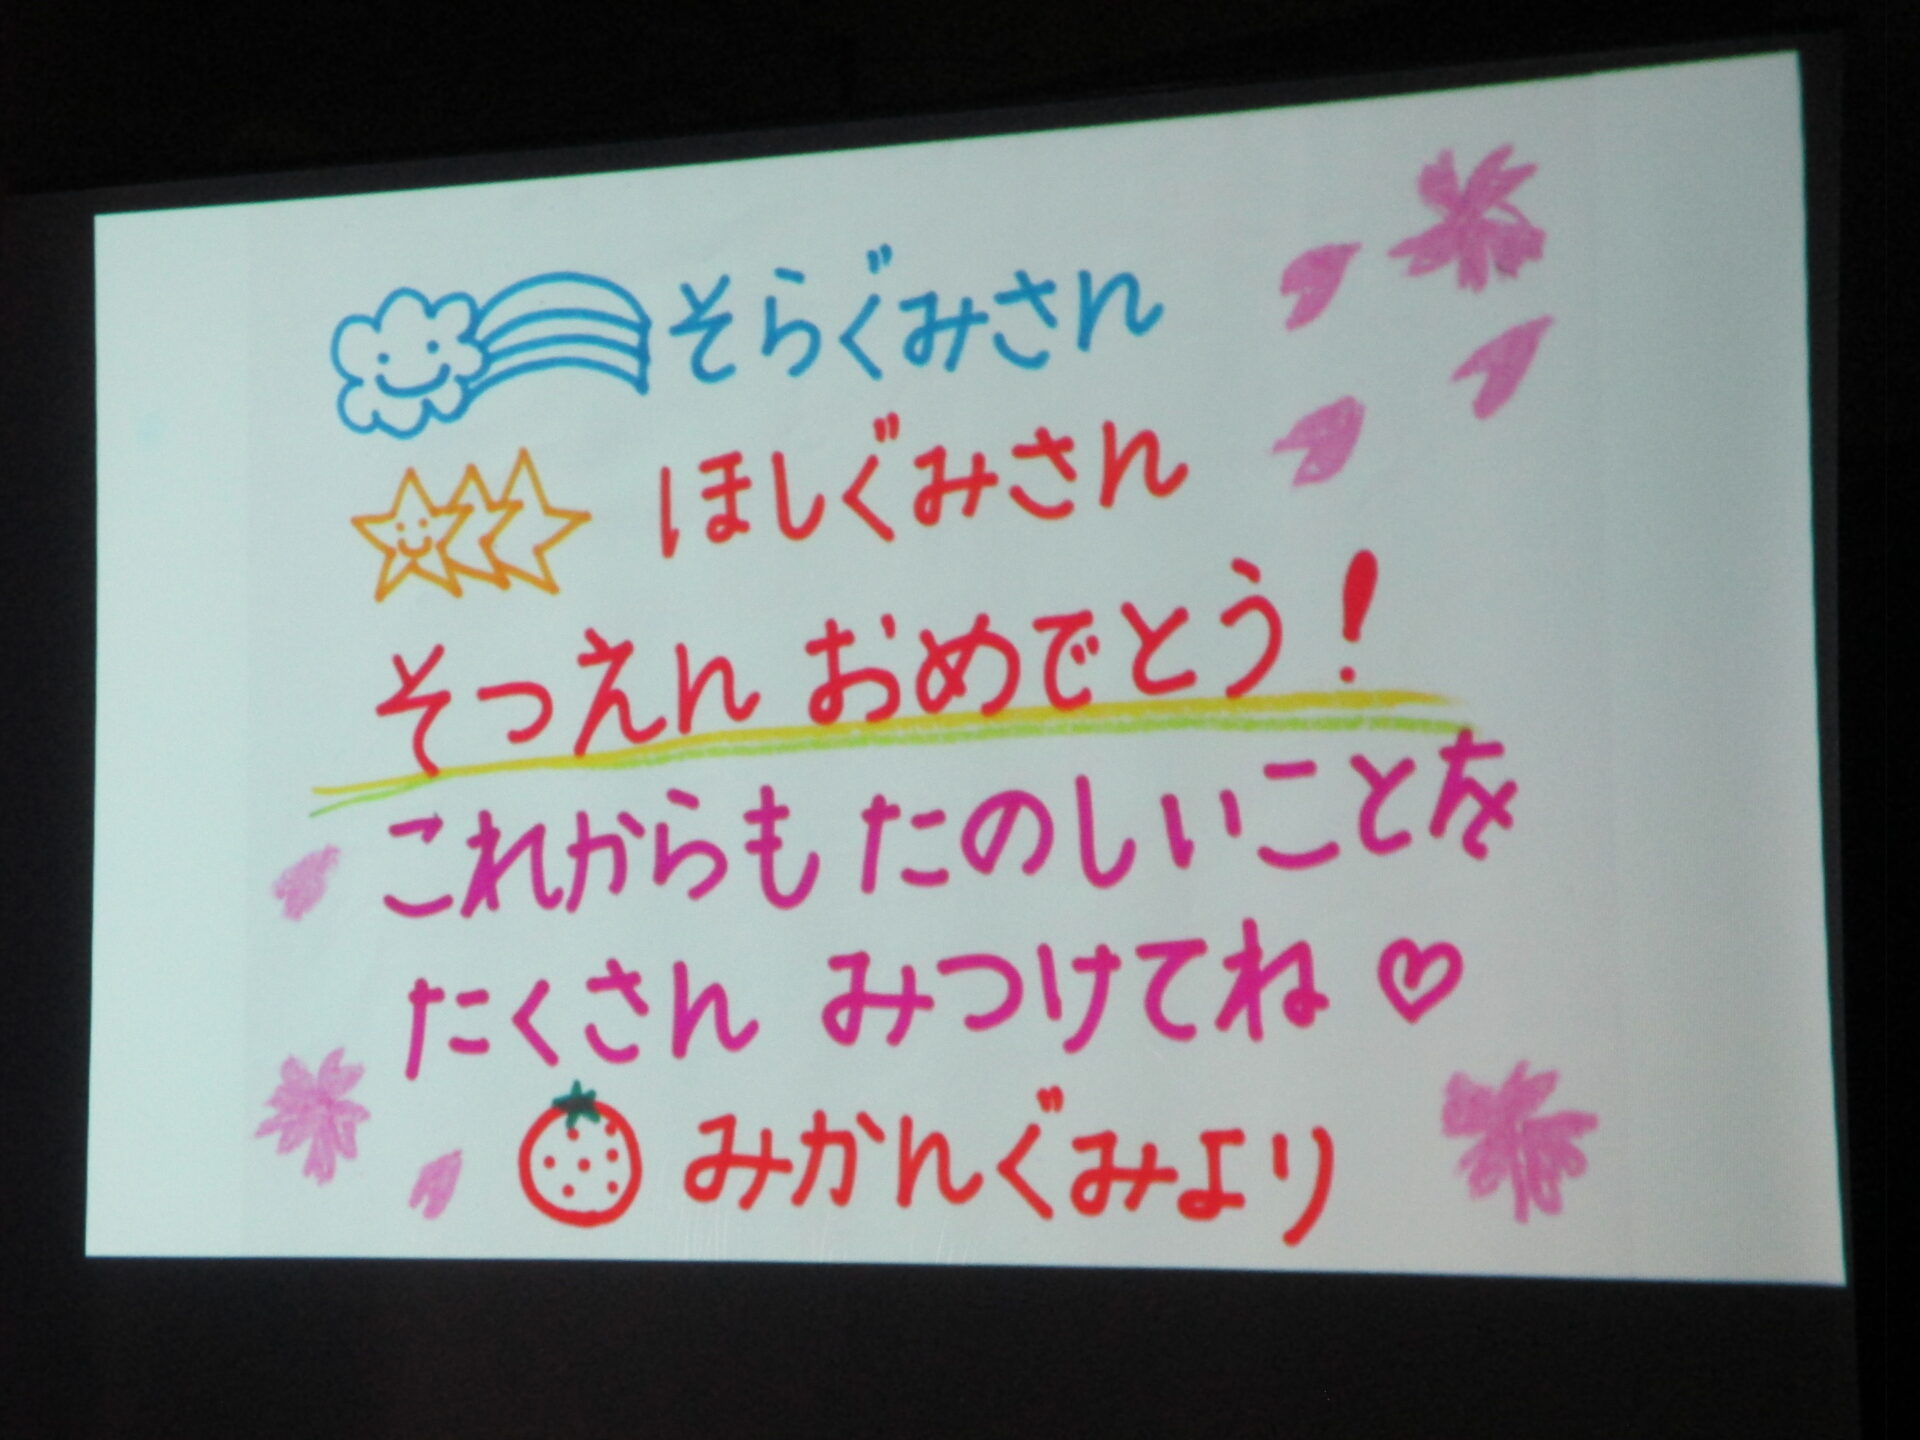 そらぐみさん
ほしぐみさん
そつえん おめでとう!
これからも たのしいことを
たくさん みつけてね♡
みかんぐみより